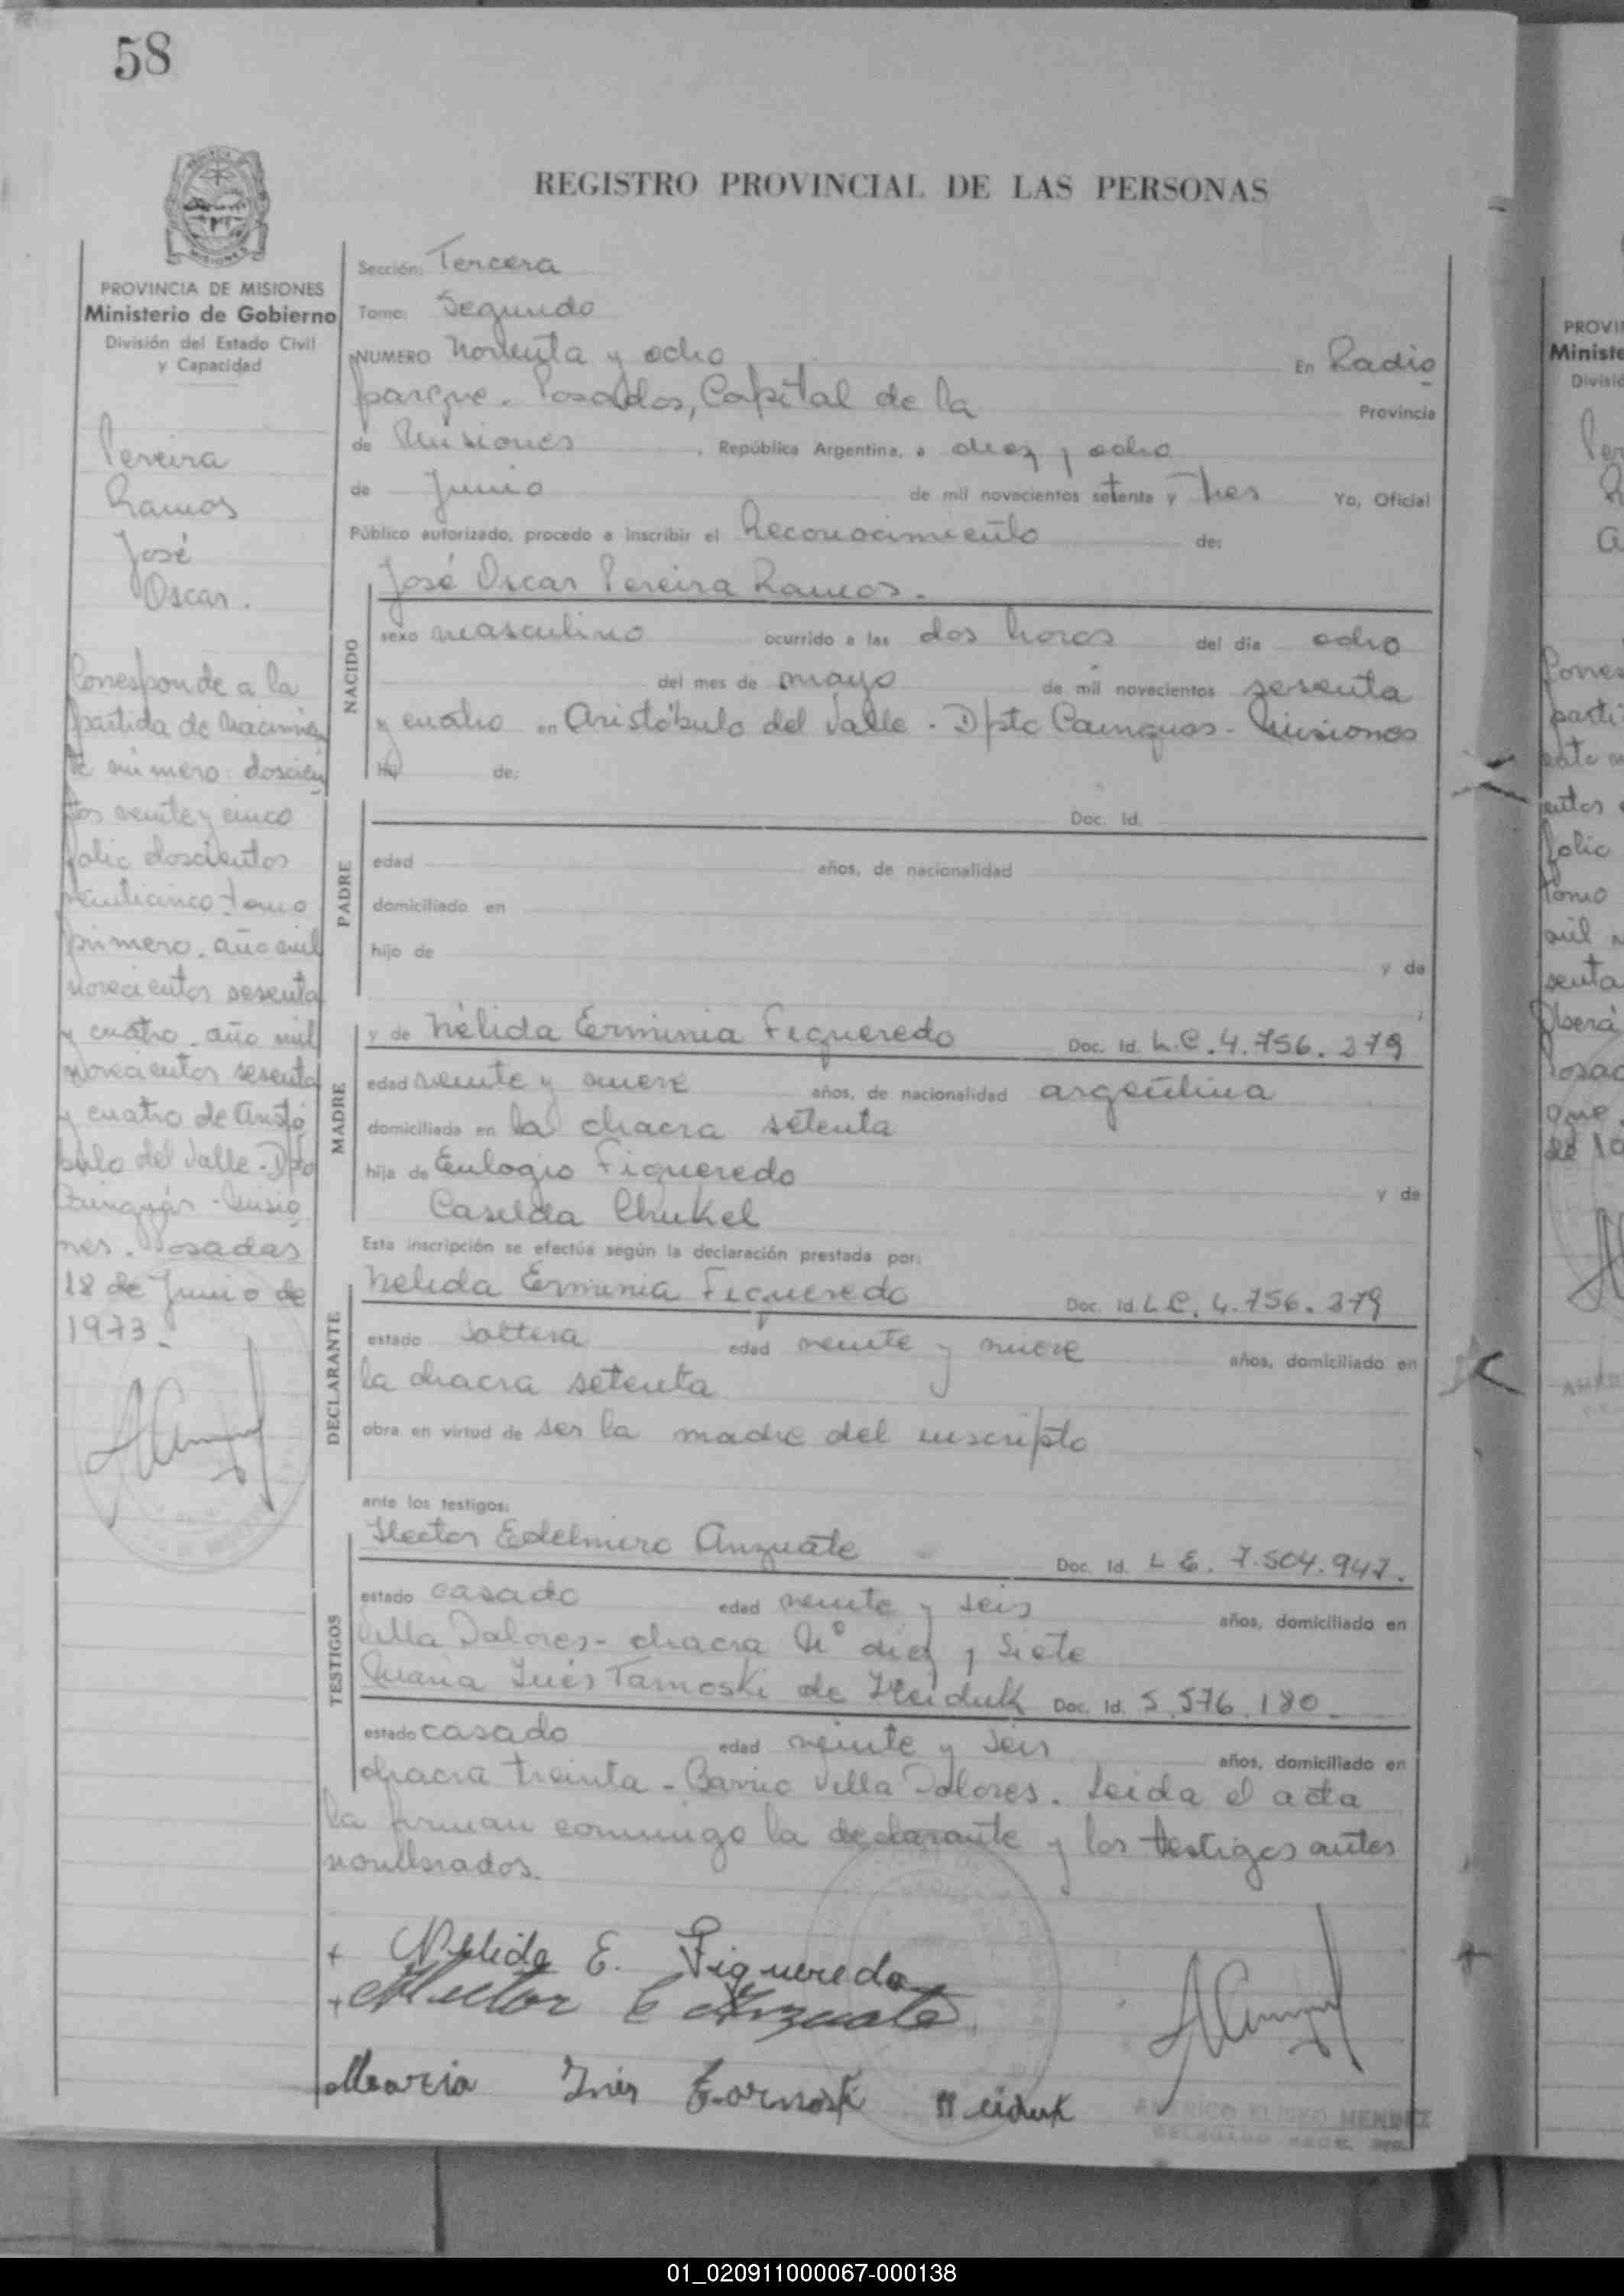 58
REGISTRO PROVINCIAL DE LAS PERSONAS
PROVINCIA DE MISIONES
Ministerio de Gobierno
División del Estado Civil
y Capacidad
Pereira
Ramos
José
Oscar.
Corresponde a la
partida de Nacimien
to número: doscien
tos veinte y cinco
folio doscientos
veinticinco tomo
primero. año mil
novecientos sesenta
y cuatro. año mil
novecientos sesenta
y cuatro de Aristó
bulo del Valle. Dpto
Cainguás - Misio
nes. Posadas
18 de Junio de
1973.
Sección: Tercera
Tomo: Segundo
NUMERO Noventa y ocho En Radio
parque. Posadas, Capital de la Provincia
de Misiones, República Argentina, a diez y ocho
de Junio de mil novecientos setenta y Tres Yo, Oficial
Público autorizado, procedo a inscribir el Reconocimiento de:
NACIDO
José Oscar Pereira Ramos.
sexo masculino ocurrido a las dos horas del día ocho
del mes de mayo de mil novecientos sesenta
y cuatro en Aristóbulo del Valle. Dpto Cainguas - Misiones
Hij de:
PADRE
Doc. Id.
edad años, de nacionalidad
domiciliado en
hijo de y de
MADRE
y de Nélida Erminia Figueredo Doc. Id. L.C. 4.756.379
edad veinte y nueve años, de nacionalidad argentina
domiciliada en la chacra setenta
hija de Eulogio Figueredo y de
Caselda Chukel
Esta inscripción se efectúa según la declaración prestada por:
DECLARANTE
Nelida Erminia Figueredo Doc. Id. L.C. 4.756.379
estado soltera edad veinte y nueve años, domiciliado en
la chacra setenta
obra en virtud de ser la madre del inscripto
ante los testigos:
TESTIGOS
Hector Edelmiro Anzuate Doc. Id. L E. 7.504.947.
estado casado edad veinte y seis años, domiciliado en
Villa Dolores - chacra Nº diez y Siete
Maria Inés Tarnoski de Heiduk Doc. Id. 5.576.180.
estado casado edad veinte y seis años, domiciliado en
chacra treinta - Barrio Villa Dolores. Leida el acta
la firman conmigo la declarante y los testigos antes
nombrados.
+ Nelida E. Figueredo
+ Hector E Anzuate
Maria Inés Tarnoski Heiduk
AMERICO ELISEO MENDEZ
PROVIN
Ministe
Divisió
01_020911000067-000138